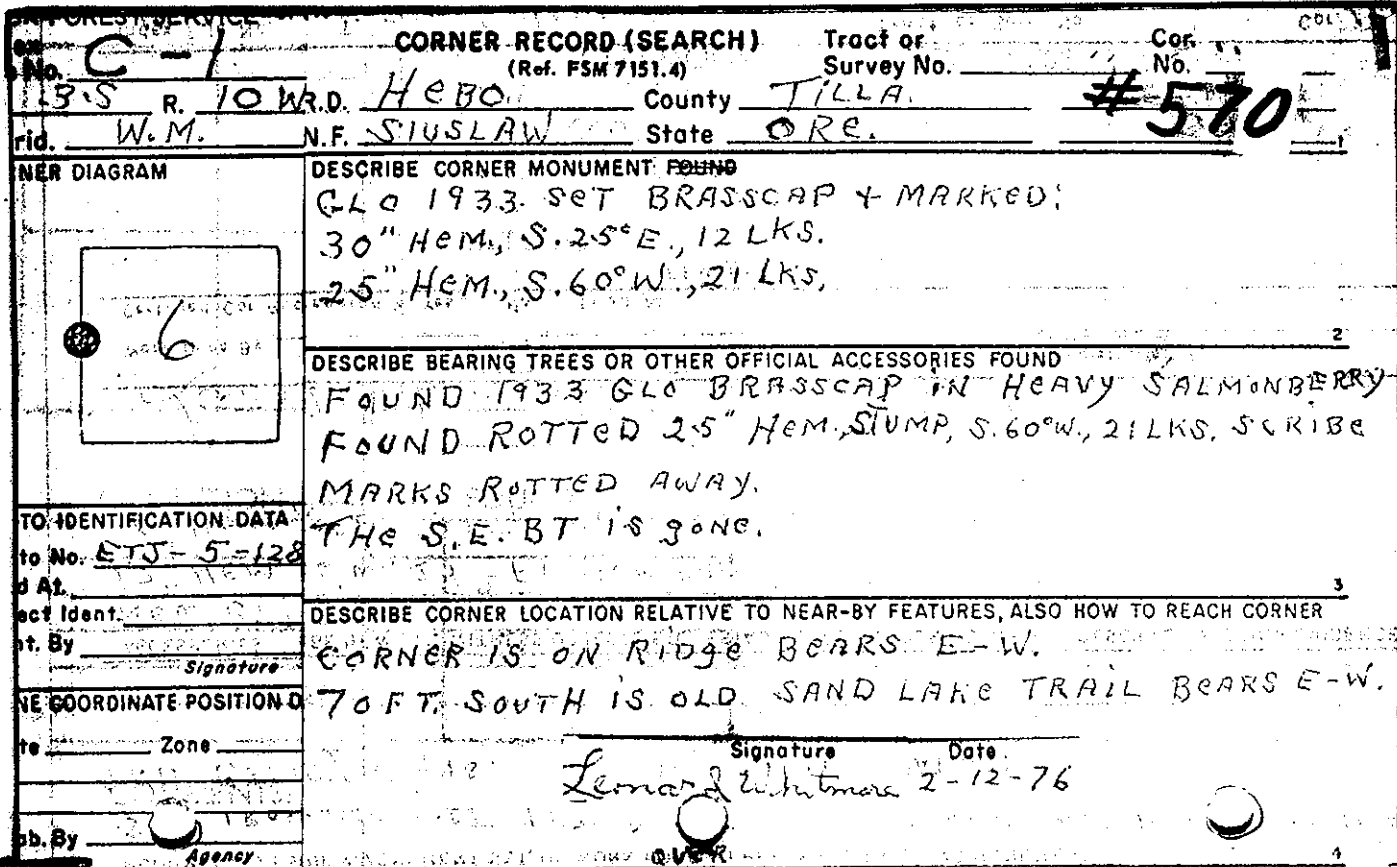 FOREST SERVICE
No. C-1
CORNER RECORD (SEARCH)
(Ref. FSM 7151.4)
Tract or
Survey No.
Cor.
No.
#570
3.S R. 10 W R.D. HEBO. County TILLA.
rid. W.M. N.F. SIUSLAW State ORE.
1
NER DIAGRAM
6
DESCRIBE CORNER MONUMENT FOUND
GLO 1933 SET BRASSCAP + MARKED:
30" HEM., S.25°E., 12 LKS.
25" HEM., S.60°W., 21 LKS.
2
DESCRIBE BEARING TREES OR OTHER OFFICIAL ACCESSORIES FOUND
FOUND 1933 GLO BRASSCAP IN HEAVY SALMONBERRY
FOUND ROTTED 25" HEM., STUMP, S.60°W., 21 LKS. SCRIBE
MARKS ROTTED AWAY.
THE S.E. BT IS GONE.
3
TO IDENTIFICATION DATA
to No. ETJ-5-128
d At.
ect Ident.
nt. By
Signature
DESCRIBE CORNER LOCATION RELATIVE TO NEAR-BY FEATURES, ALSO HOW TO REACH CORNER
CORNER IS ON RIDGE BEARS E-W.
70 FT. SOUTH IS OLD SAND LAKE TRAIL BEARS E-W.
NE COORDINATE POSITION D
te Zone
Signature Date
Whitmore 2-12-76
ob. By
Agency
OVER
4